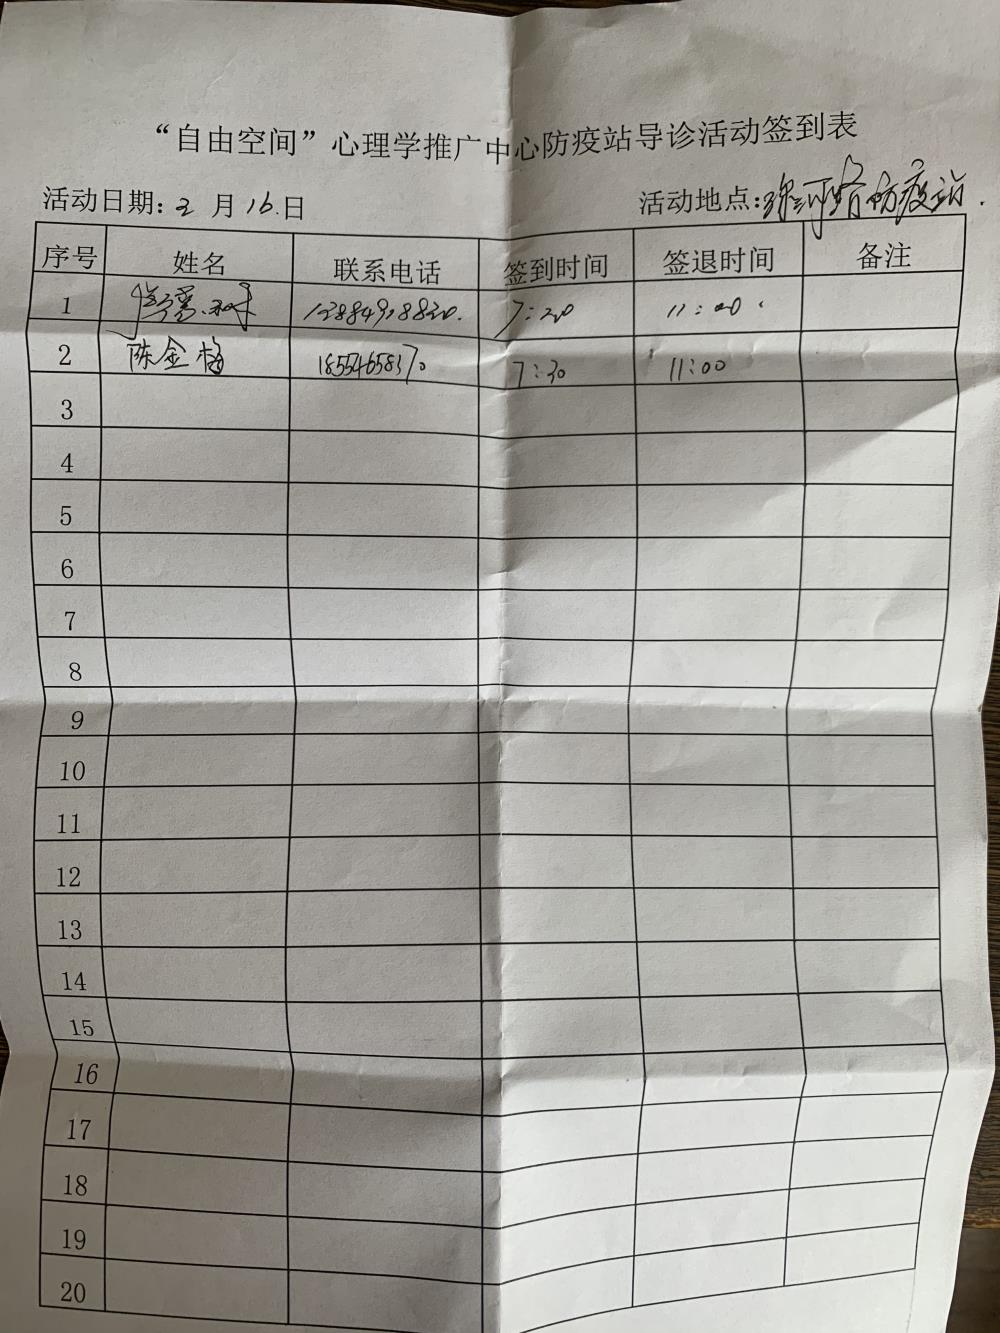 “自由空间”心理学推广中心防疫站导诊活动签到表
活动日期: 3 月 16.日 活动地点: 防疫站.
序号 姓名 联系电话 签到时间 签退时间 备注
1 7:20 11:00
2 陈金梅 18554658170 7:30 11:00
3
4
5
6
7
8
9
10
11
12
13
14
15
16
17
18
19
20